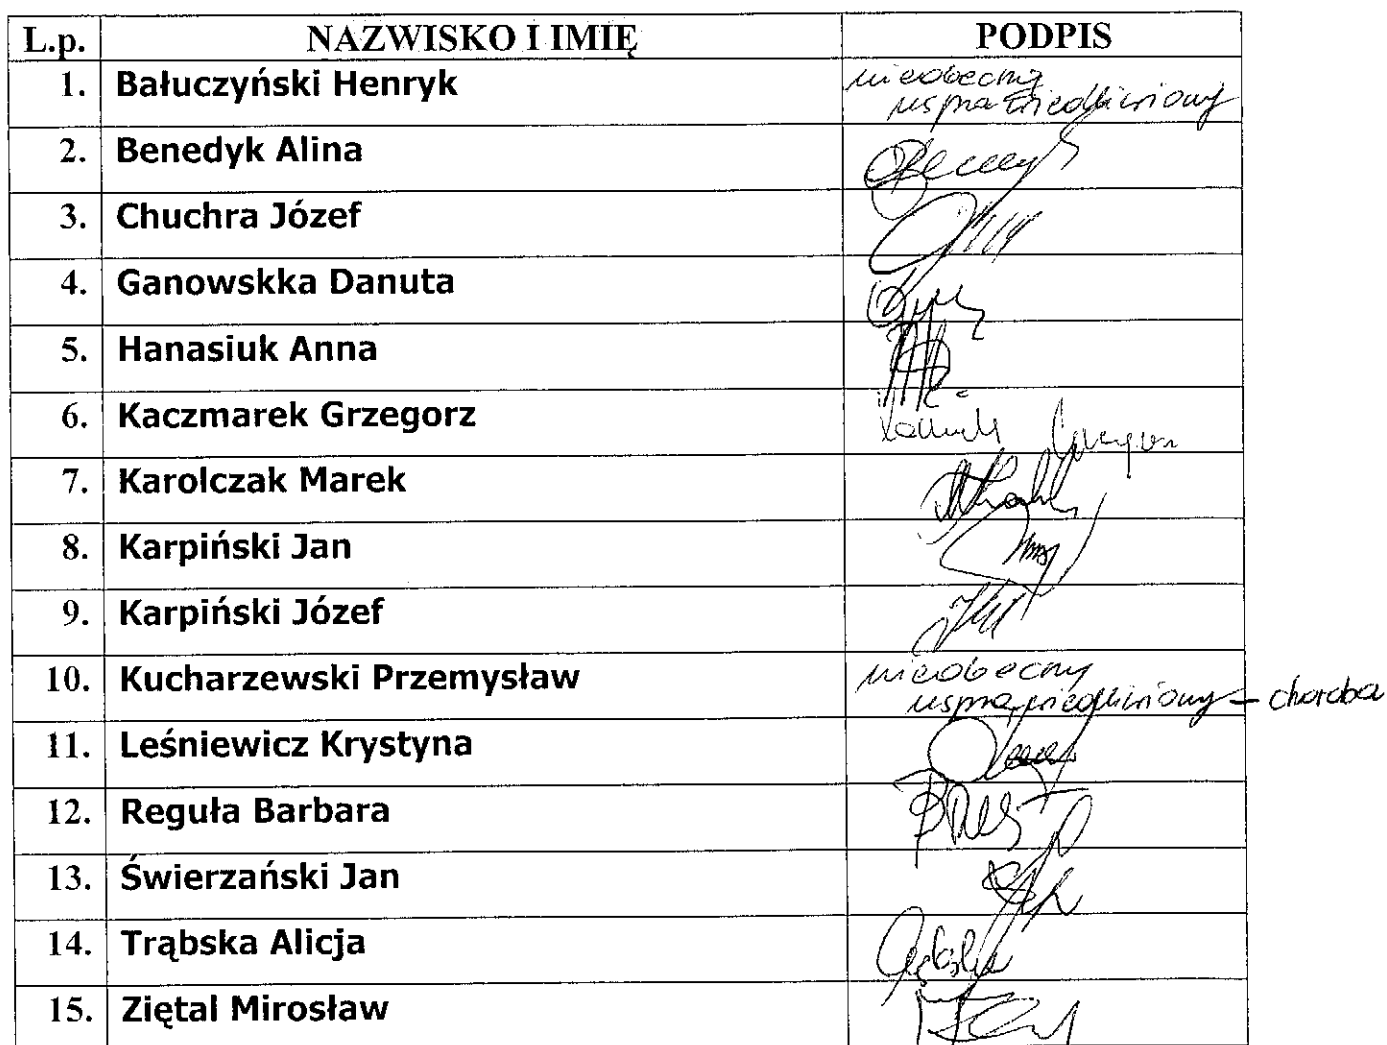 L.p. NAZWISKO I IMIĘ PODPIS
1. Bałuczyński Henryk nieobecny
usprawiedliwiony
2. Benedyk Alina
3. Chuchra Józef
4. Ganowskka Danuta
5. Hanasiuk Anna
6. Kaczmarek Grzegorz
7. Karolczak Marek
8. Karpiński Jan
9. Karpiński Józef
10. Kucharzewski Przemysław nieobecny
usprawiedliwiony – choroba
11. Leśniewicz Krystyna
12. Reguła Barbara
13. Świerzański Jan
14. Trąbska Alicja
15. Ziętal Mirosław